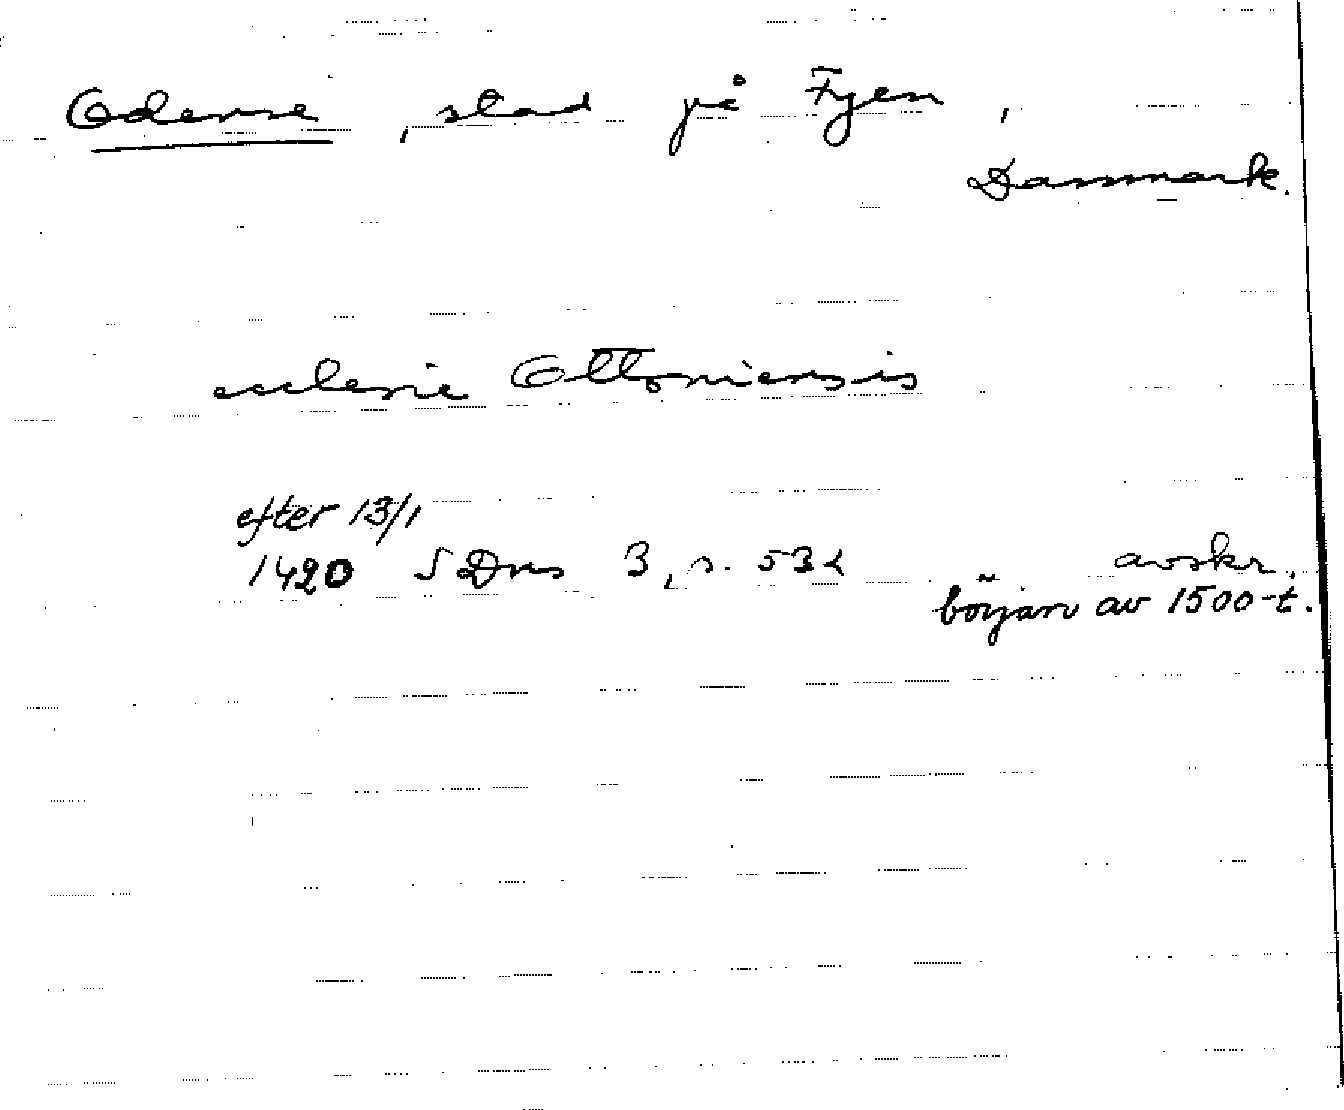 Odense, stad på Fyen,
Danmark.
ecclesie Ottoniensis
efter 13/1
1420 SDns 3, s. 532 avskr.
början av 1500-t.